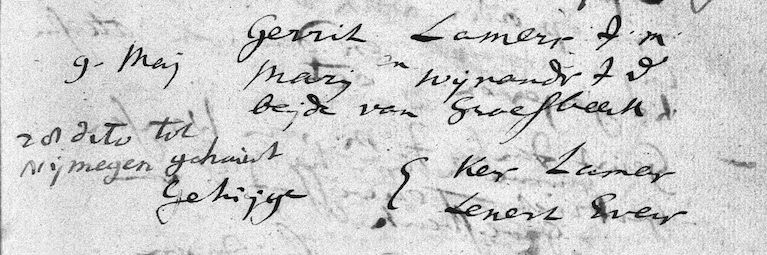 Gerrit Lamers J: m:
9 Maij Marij en Wijnands J d
beijde van Groesbeeck
20 dito tot
Nijmegen gehuwt
Getuijge { Ker Lamers
Lenert Evers